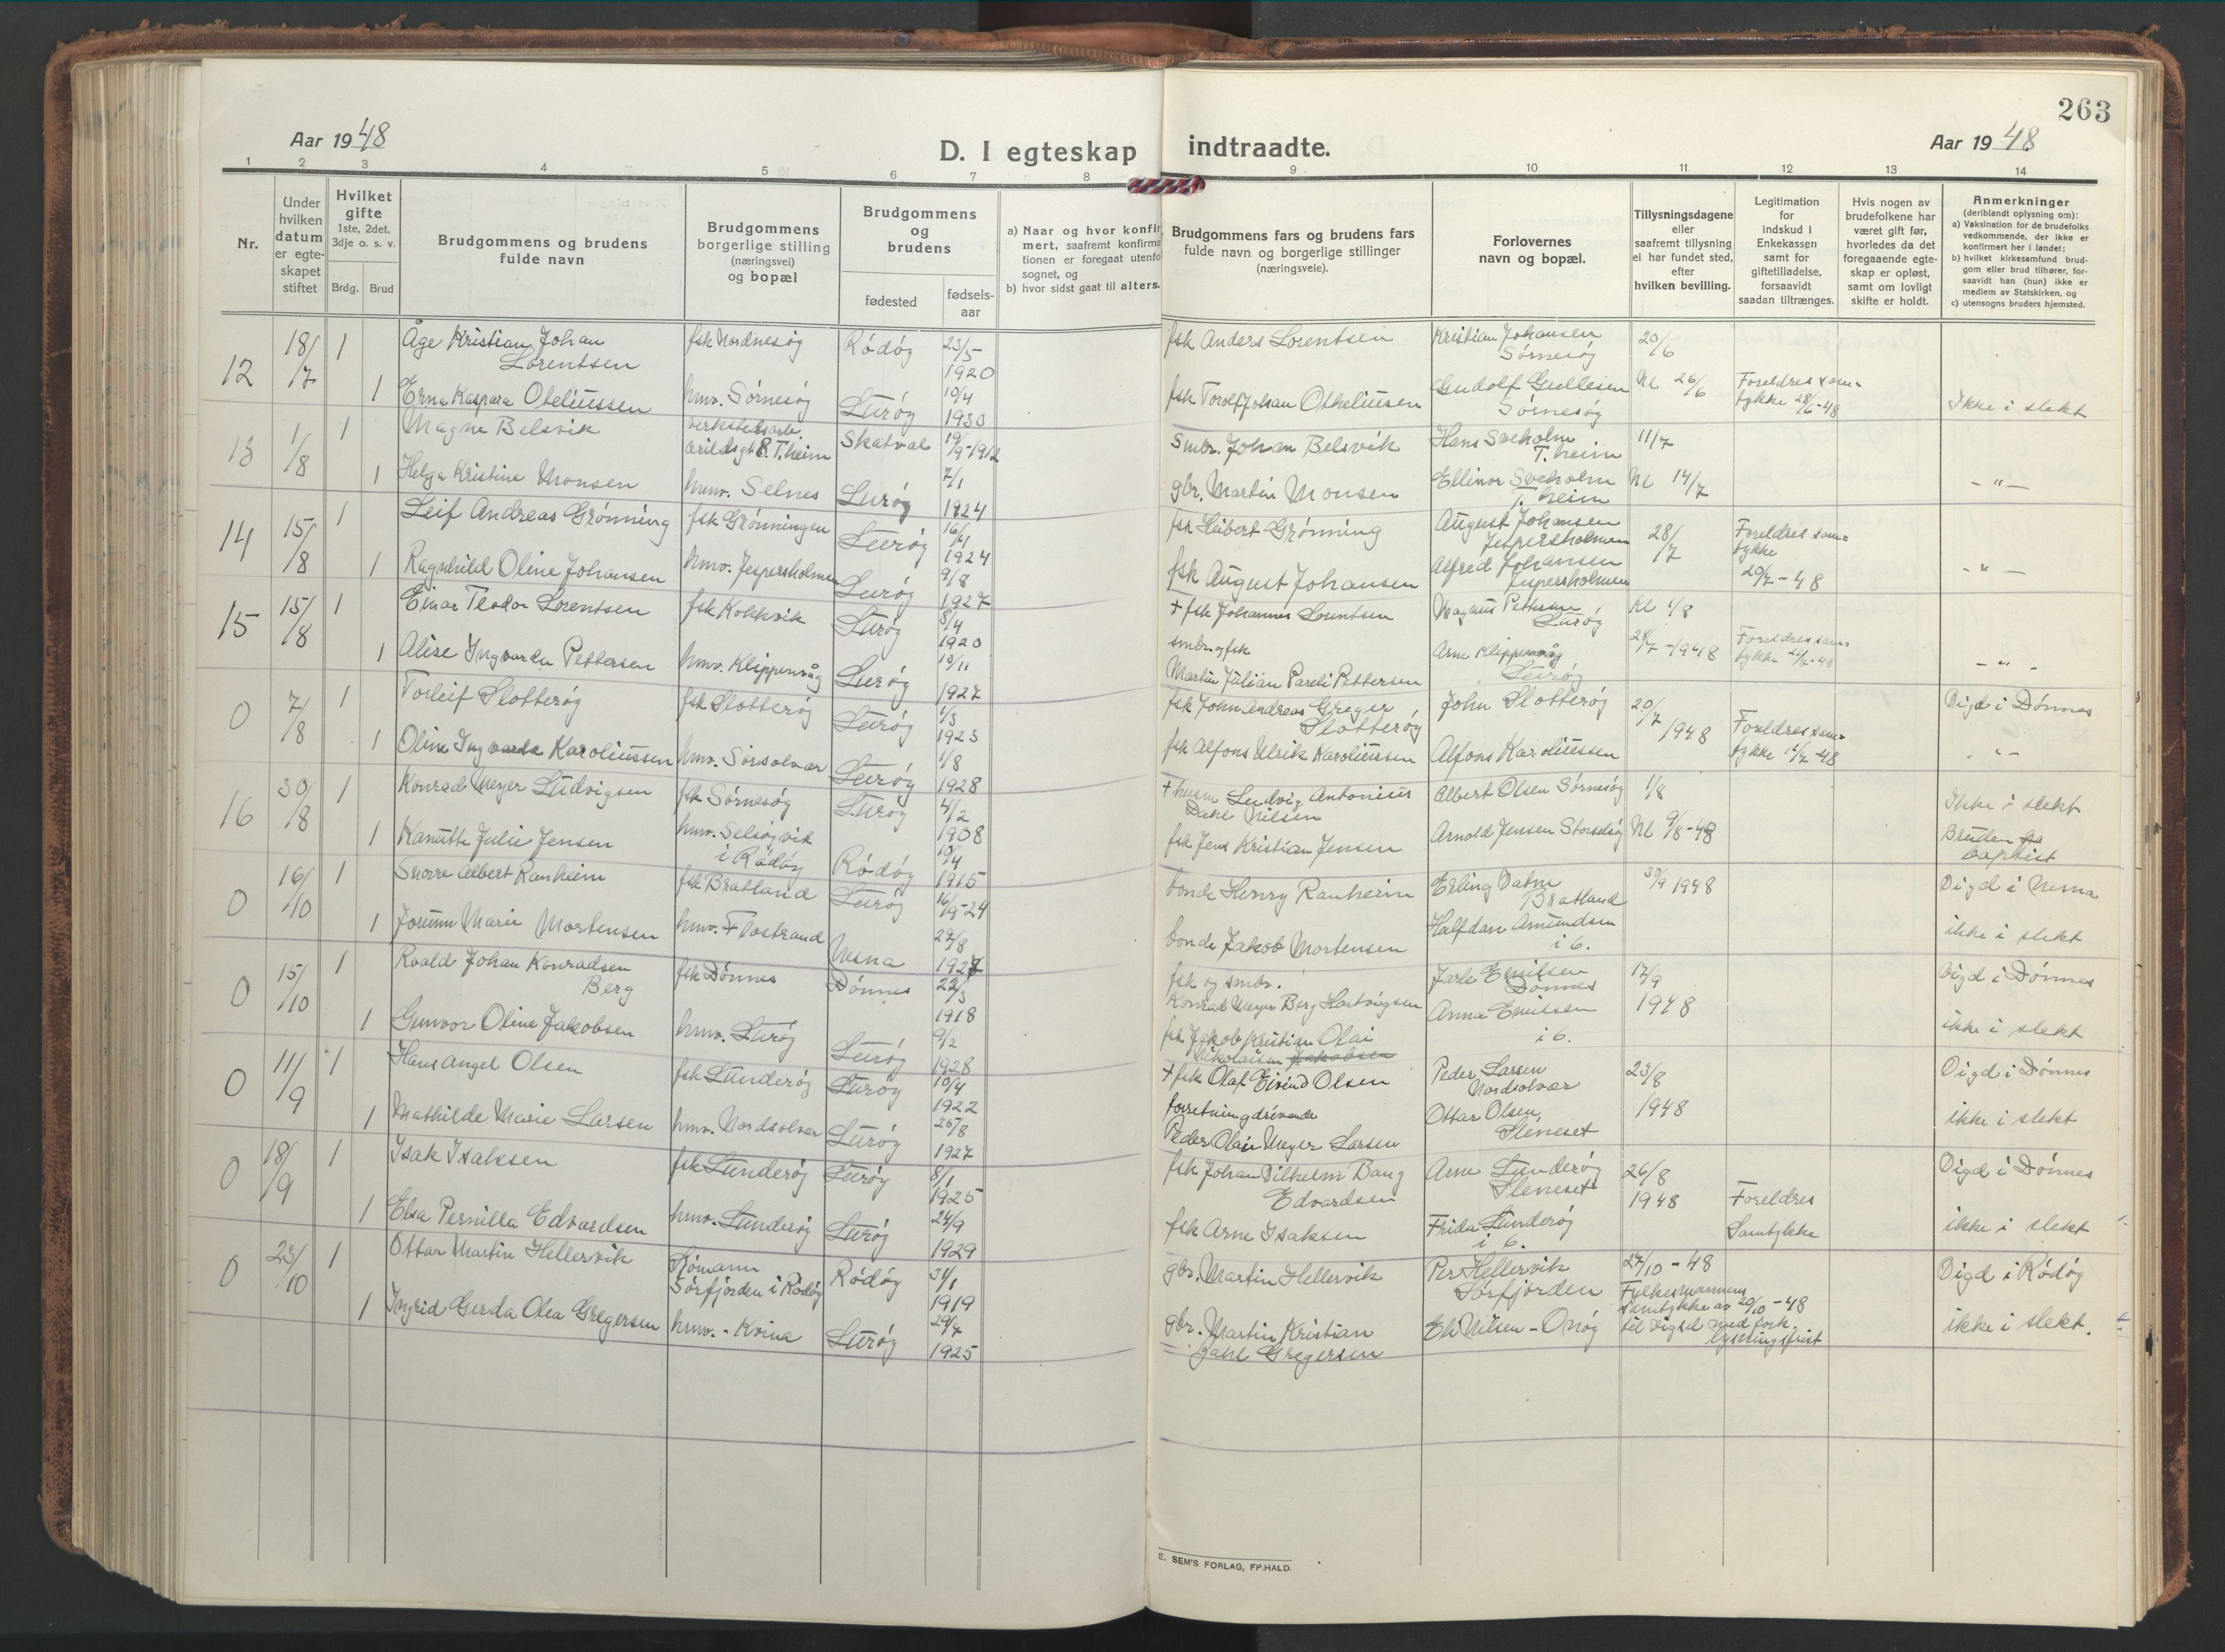 263
Aar 1948
D. I egteskap indtraadte.
Aar 1948
1 2 3 4 5 6 7 8 9 10 11 12 13 14
Nr.
Under hvilken datum er egte-skapet stiftet
Hvilket gifte 1ste, 2det, 3dje o. s. v.
Brdg. Brud
Brudgommens og brudens fulde navn
Brudgommens borgerlige stilling (næringsvei) og bopæl
Brudgommens og brudens
fødested
fødsels-aar
a) Naar og hvor konfir
mert, saafremt konfirma
tionen er foregaat utenfo
sognet, og
b) hvor sidst gaat til alters.
Brudgommens fars og brudens fars
fulde navn og borgerlige stillinger
(næringsveie).
Forlovernes
navn og bopæl.
Tillysningsdagene
eller
saafremt tillysning
ei har fundet sted,
efter
hvilken bevilling.
Legitimation
for
indskud i
Enkekassen
samt for
giftetilladelse,
forsaavidt
saadan tiltrænges.
Hvis nogen av
brudefolkene har
været gift før,
hvorledes da det
foregaaende egte-
skap er opløst,
samt om lovligt
skifte er holdt.
Anmerkninger
(deriblandt oplysning om):
a) Vaksination for de brudefolks
vedkommende, der ikke er
konfirmert her i landet;
b) hvilket kirkesamfund brud-
gom eller brud tilhører, for-
saavidt han (hun) ikke er
medlem av Statskirken, og
c) utensogns bruders hjemsted.
12 18/7 1 Åge Kristian Johan Lorentsen fsk Nordnesøy Rødøy 23/5 1920 fsk Anders Lorentsen Kristian Johansen Sørnesøy 20/6
1 Erna Kaspara Oteliussen hmv. Sørnesøy Lurøy 10/4 1930 fsk Torolf Johan Otheliusen Gudolf Gullesen Sørnesøy Nl 26/6 Foreldres sam-tykke 28/6-48 Ikke i slekt
13 1/8 1 Magne Belsvik verkstedsarb. Arildsgt 8. T.heim Skatval 19/9-1912 Smbr. Johan Belsvik Hans Sveholm T.heim 11/7
1 Helga Kristine Monsen hmv. Selnes Lurøy 7/1 1924 gbr. Martin Monsen Ellinor Sveholm T.heim Nl 14/7 - " -
14 15/8 1 Leif Andreas Grønning fsk Grønningen Lurøy 16/4 1924 fsk Heibert Grønning August Johansen Jespersholmen 28/7 Foreldres sam-tykke 20/7-48
1 Ragnhild Oline Johansen hmv. Jespersholmen Lurøy 9/8 1927 fsk August Johansen Alfred Johansen Jespersholmen - " -
15 15/8 1 Einar Teodor Lorentsen fsk Kokkvik Lurøy 8/4 1920 + fsk Johannes Lorentsen Magnus Pettersen Lurøy Kl 1/8
1 Alise Ingvarda Pettersen hmv. Klippenvåg Lurøy 19/11 1927 smbr. og fsk Martin Julian Pareli Pettersen Arne Klippenvåg Lurøy 28/7-1948 Foreldres sam-tykke - " -
0 7/8 1 Torleif Slotterøy fsk Slotterøy Lurøy 1/3 1923 fsk John Andreas Greger Slotterøy John Slotterøy 20/7 1948 Vigd i Dønnes
1 Oline Ingvarda Karoliussen hmv. Sørsolvær Lurøy 1/8 1928 fsk Alfons Ulrik Karoliussen Alfons Karoliussen Foreldres sam-tykke 12/7-48 - " -
16 30/8 1 Konrad Meyer Ludvigsen fsk Sørnesøy Lurøy 4/2 1908 + husm Ludvig Antonius Dahl Nilsen Albert Olsen Sørnesøy 1/8 Ikke i slekt
1 Kanutte Julie Jensen hmv. Selsøyvik i Rødøy Rødøy 10/4 1915 fsk Jens Kristian Jensen Arnold Jensen Storselsøy Nl 9/8-48 Bruden baptist
0 16/10 1 Snorre Albert Ranheim fsk Bratland Lurøy 16/9-24 bonde Henry Ranheim Erling Datne Bratland 30/9 1948 Vigd i Nesna
1 Jorunn Marie Mortensen hmv. Flostrand Nesna 27/8 1927 bonde Jakob Mortensen Halfdan Amundsen i b. ikke i slekt
0 15/10 1 Roald Johan Konradsen Berg fsk Dønnes Dønnes 22/3 1918 fsk og smbr. Konrad Meyer Berg Hartvigsen Jarle Emilsen Dønnes 17/9 1948 Vigd i Dønnes
1 Gunvor Oline Jakobsen hmv. Lurøy Lurøy 9/2 1928 fsk Jakob Kristian Olai Nikolaisen Jakobsen Anna Emilsen i b. ikke i slekt
0 11/9 1 Hans Angel Olsen fsk Lunderøy Lurøy 10/4 1922 + fsk Olaf Eivind Olsen Peder Larsen Nordsolvær 23/8 1948 Vigd i Dønnes
1 Mathilde Marie Larsen hmv. Nordsolvær Lurøy 25/8 1927 forretningdrivende Peder Olai Meyer Larsen Ottar Olsen Sleneset ikke i slekt
0 18/9 1 Isak Isaksen fsk Lunderøy Lurøy 8/1 1925 fsk Johan Vilhelm Bang Edvardsen Arne Lunderøy Sleneset 26/8 1948 Vigd i Dønnes
1 Elsa Pernilla Edvardsen hmv. Lunderøy Lurøy 24/9 1929 fsk Arne Isaksen Frida Lunderøy i b. Foreldres Samtykke ikke i slekt
0 23/10 1 Ottar Martin Hellervik Sjømann Sørfjorden i Rødøy Rødøy 31/1 1919 gbr. Martin Hellervik Per Hellervik Sørfjorden 27/10-48 Fylkesmannens samtykke av 20/10-48 til vigsel med fork. lysningsfrist Vigd i Rødøy
1 Ingrid Gerda Olea Gregersen hmv. - Kvina Lurøy 29/7 1925 gbr. Martin Kristian Dahl Gregersen Eli Nilsen - Onøy ikke i slekt.
E. SEM'S FORLAG, FR.HALD.